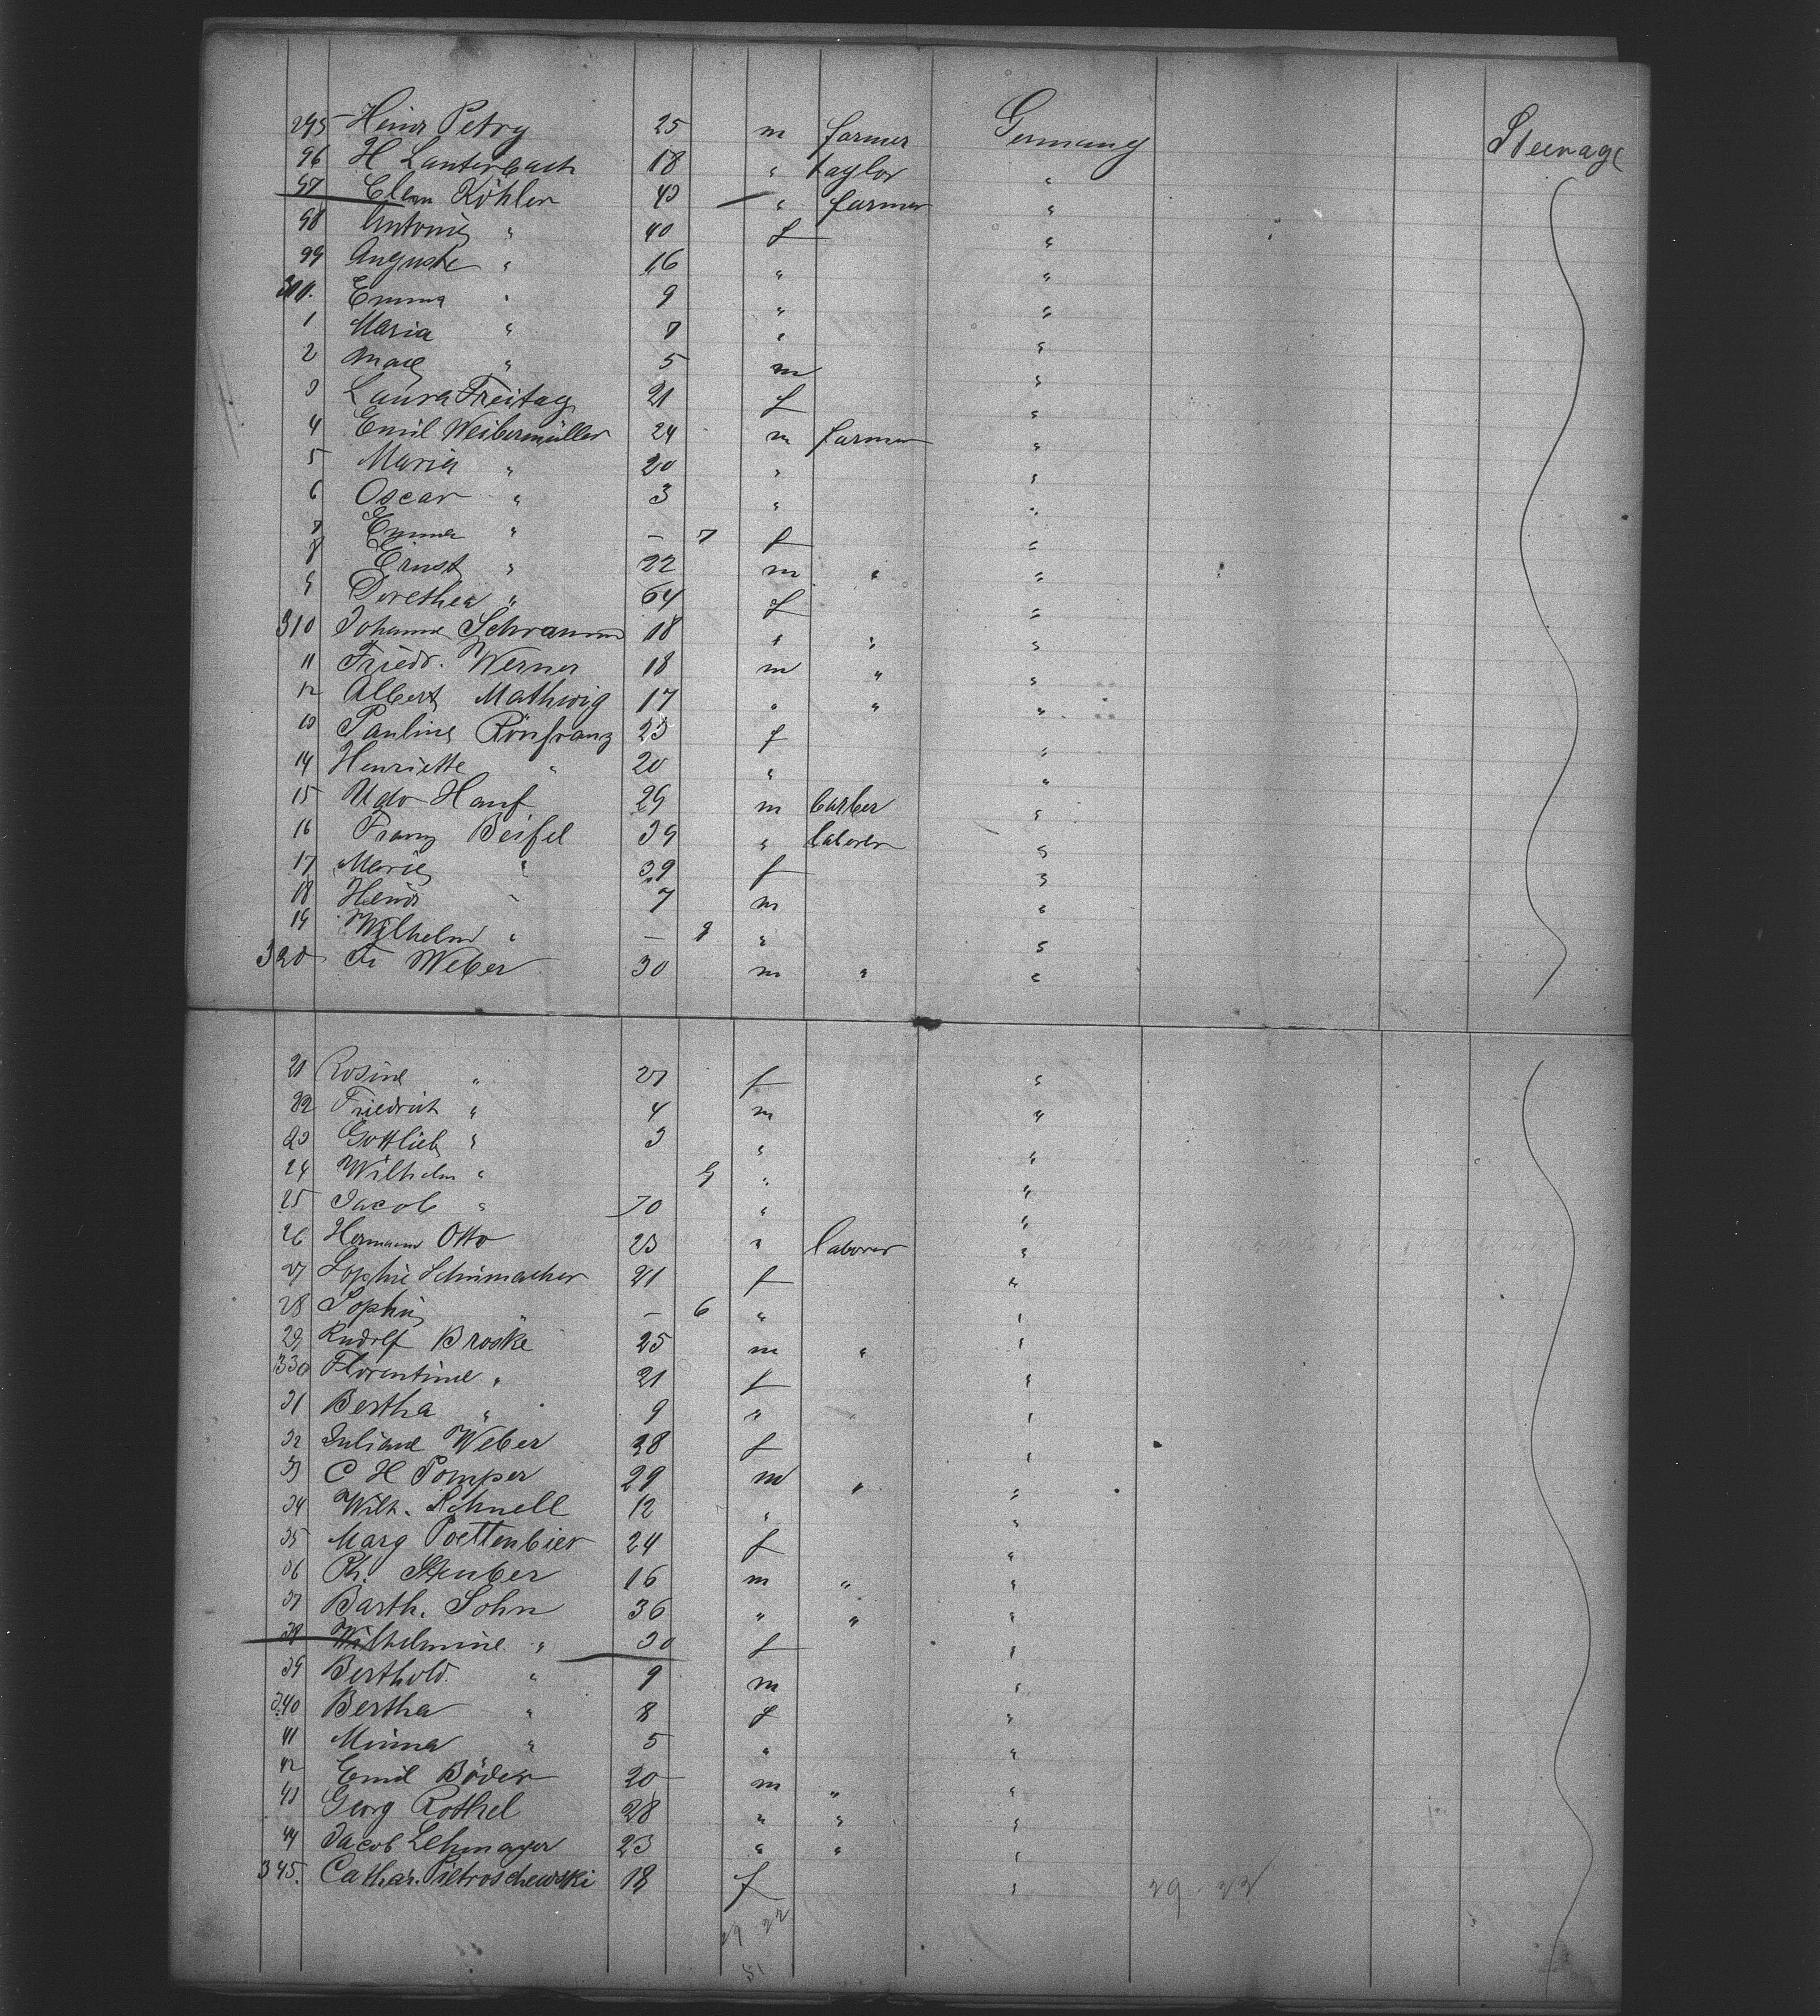 295 Heinr Petry 25 m farmer Germany Steerage
96 H Lauterbach 18 " taylor "
97 Clem Köhler 43 " farmer "
98 Antonie " 40 f "
99 Auguste " 16 " "
300. Emma " 9 " "
1 Maria " 7 " "
2 Max " 5 m "
3 Laura Freitag 21 f "
4 Emil Weibermüller 24 m farmer "
5 Maria " 20 " "
6 Oscar " 3 " "
7 Emma " — 7 f "
8 Ernst " 22 m " "
9 Dorethea " 64 f "
310 Johanne Schramm 18 " " "
11 Friedr. Werner 18 m " "
12 Albert Mathwig 17 " " "
13 Pauline Rönfranz 23 f "
14 Henriette " 20 " "
15 Udo Hanf 29 m barber "
16 Franz Beifel 39 " laborer "
17 Marie " 39 f "
18 Heinr " 7 m "
19 Wilhelm " — 9 " "
320 Fr Weber 30 m " "
21 Rosine " 27 f "
22 Friedrich " 4 m "
23 Gottlieb " 3 " "
24 Wilhelm " 9 " "
25 Jacob " 70 " "
26 Hermann Otto 23 " laborer "
27 Sophie Schumacher 21 f "
28 Sophie " — 6 " "
29 Rudolf Broske 25 m " "
330 Florentine " 21 f "
31 Bertha " 9 " "
32 Juliane Weber 28 f "
33 C H Pomper 29 m " "
34 Wilh. Schnell 12 " "
35 Marg Poettenbier 24 f "
36 Ph. Stuber 16 m " "
37 Barth. Sohn 36 " " "
38 Wilhelmine " 30 f "
39 Berthold " 9 m "
340 Bertha " 8 f "
41 Minna " 5 " "
42 Emil Böder 20 m " "
43 Georg Rothel 28 " " "
44 Jacob Lehmayer 23 " " "
345. Cathar. Pietroschewski 18 f " 29 . 22
29 22
51